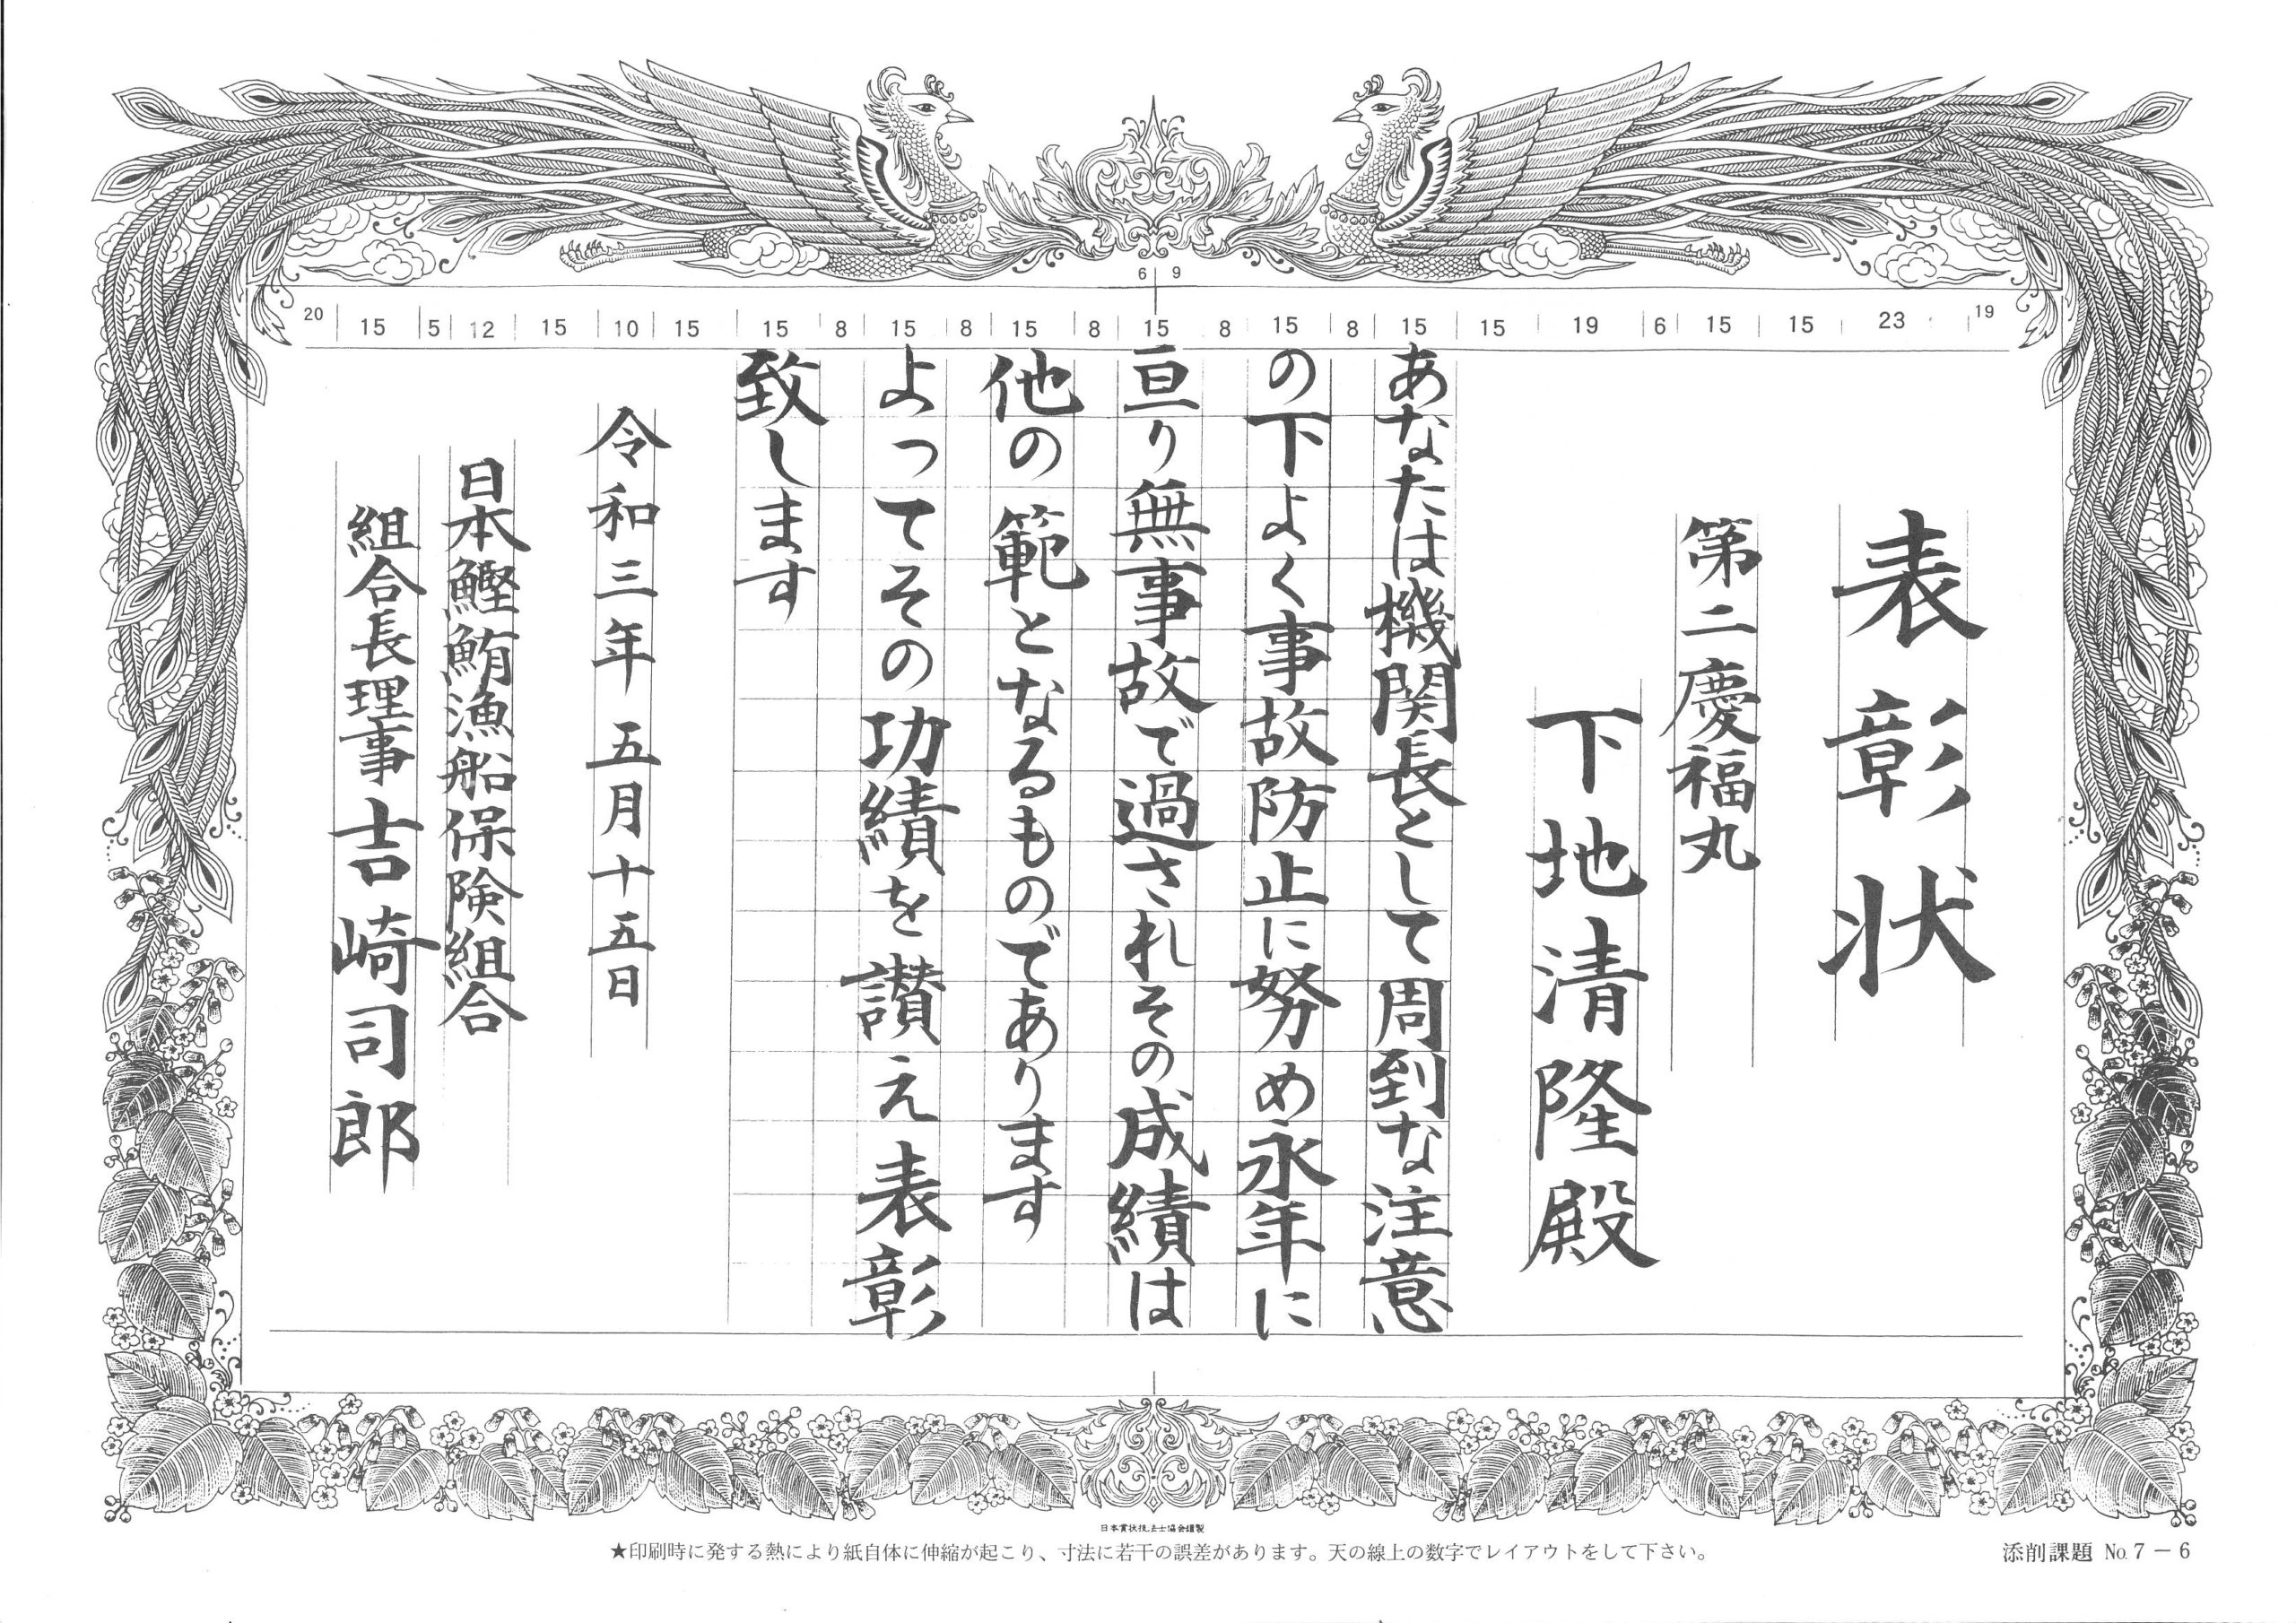 6 9
20 15 5 12 15 10 15 15 8 15 8 15 8 15 8 15 8 15 15 19 6 15 15 23 19
表彰状
第二慶福丸
下地清隆殿
あなたは機関長として周到な注意
の下よく事故防止に努め永年に
亘り無事故で過されその成績は
他の範となるものであります
よってその功績を讃え表彰
致します
令和三年五月十五日
日本鰹鮪漁船保険組合
組合長理事吉崎司郎
日本賞状技法士協会謹製
★印刷時に発する熱により紙自体に伸縮が起こり、寸法に若干の誤差があります。天の線上の数字でレイアウトをして下さい。
添削課題 No.7－6